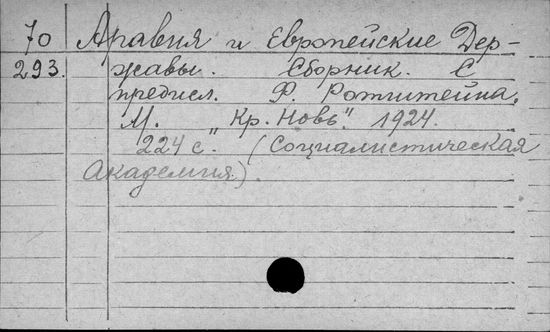 70 Аравия и Европейские Дер-
293. жавы. Сборник. С
предисл. Ф. Ротштейна.
М. „Кр. Новь". 1924.
224 с. (Социалистическая
Академия).